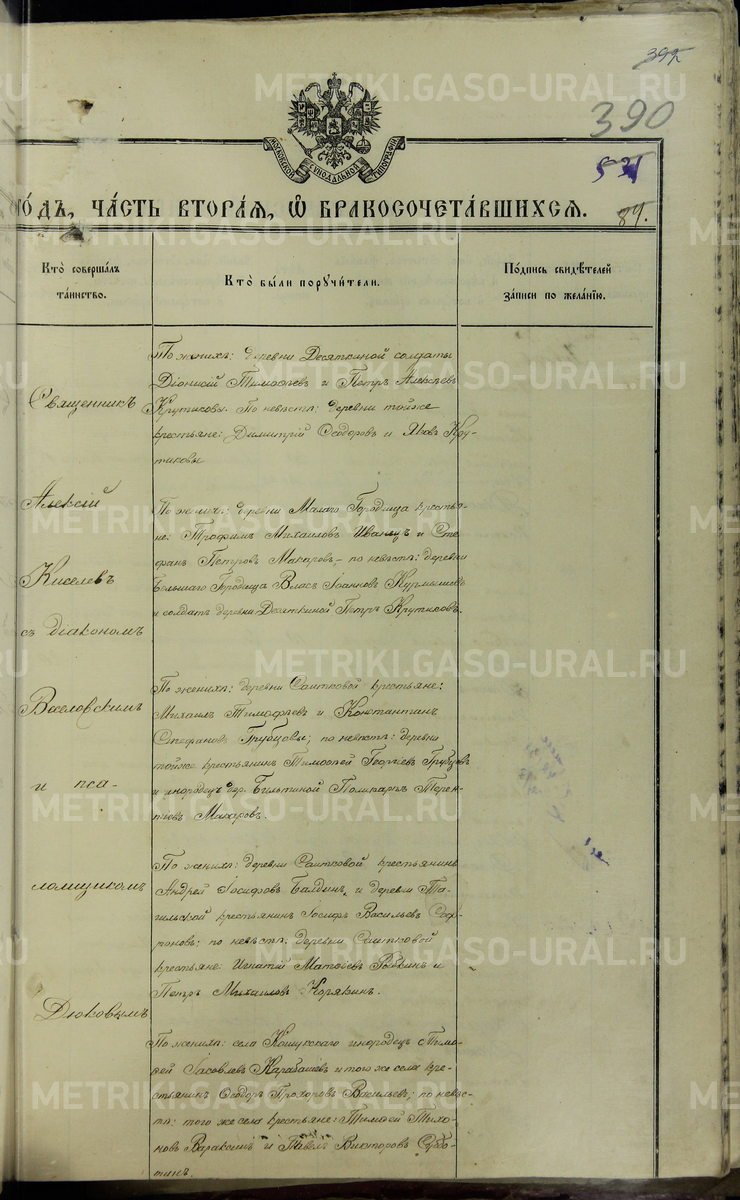 392
390
531
МОСКОВСКОЙ СѴНОДАЛЬНОЙ ТИПОГРАФІИ
ГО́ДЪ, ЧА́СТЬ ВТОРА́Я, Ѡ БРАКОСОЧЕТА́ВШИХСЯ.
84.
Кто̀ соверша́лъ
та́инство.
Кто̀ бы́ли поручи́тели.
По́дпись свидѣ́телей
за́писи по жела́нїю.
Священникъ
Алексій
Киселевъ
съ діакономъ
Веселовскимъ
и пса-
ломщикомъ
Дюковымъ
По женихѣ: деревни Десяткиной солдаты
Діонисій Тимофѣевъ и Петръ Алексѣевъ
Крутиковы. По невѣстѣ: деревни тойже
крестьяне: Димитрій Ѳеодоровъ и Яковъ Кру-
тиковы
По женихѣ: деревни Малаго Городища крестья-
не: Трофимъ Михаиловъ Иванецъ и Сте-
фанъ Петровъ Макаровъ – по невѣстѣ: деревни
Большаго Городища Власъ Іоанновъ Курмышевъ
и солдатъ деревни Десяткиной Петръ Крутиковъ.
По женихѣ: деревни Саитковой крестьяне:
Михаилъ Тимофѣевъ и Константинъ
Стефановъ Грубцовы; по невѣстѣ: деревни
тойже крестьянинъ Тимоѳей Георгіевъ Грубцовъ
и инородецъ дер. Поликарпъ Терен-
тіевъ Макаровъ.
По женихѣ: деревни Саитковой крестьянинъ
Андрей Іосифовъ Балдинъ, и деревни Та-
гильской крестьянинъ Іосифъ Васильевъ Соф-
роновъ; по невѣстѣ: деревни Саитковой
крестьяне: Игнатій Матѳіевъ и
Петръ Михаиловъ Корякинъ.
По женихѣ: села Кошукскаго инородецъ Тимо-
ѳей Іаковлевъ Карабашевъ и того же села кре-
стьянинъ Ѳеодоръ Прохоровъ Васильевъ; по невѣс-
тѣ: того же села крестьяне: Тимоѳей Тихо-
новъ Вараксинъ и Павелъ Викторовъ Суббо-
тинъ.
METRIKI.GASO-URAL.RU